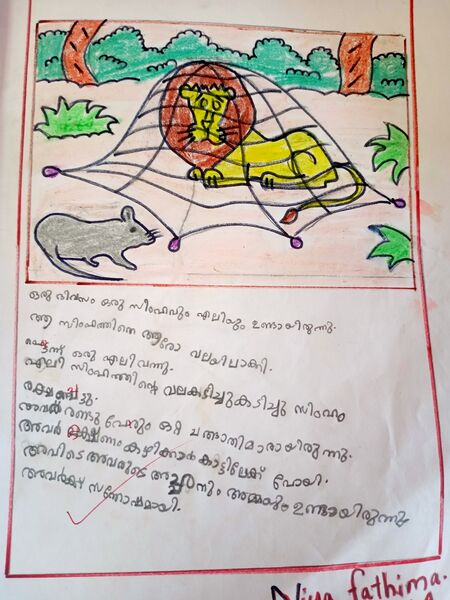 ഒരു ദിവസം ഒരു സിംഹവും എലിയും ഉണ്ടായിരുന്നു.
ആ സിംഹത്തിനെ ആരോ വലയിലാക്കി.
പെട്ടന്ന് ഒരു എലി വന്നു.
എലി സിംഹത്തിന്റെ വലകടിച്ചുകടിച്ചു സിംഹം
രക്ഷപ്പെട്ടു.
അവർ രണ്ടു പേരും ചങ്ങാതിമാരായിരുന്നു.
അവർ ഭക്ഷണം കഴിക്കാൻ കാട്ടിലേക്ക് പോയി.
അവിടെ അവരുടെ അച്ഛനും അമ്മയും ഉണ്ടായിരുന്നു
അവർക്ക് സന്തോഷമായി.
Niya fathima.